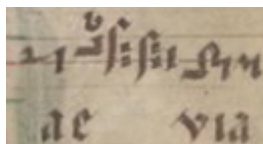 ae via